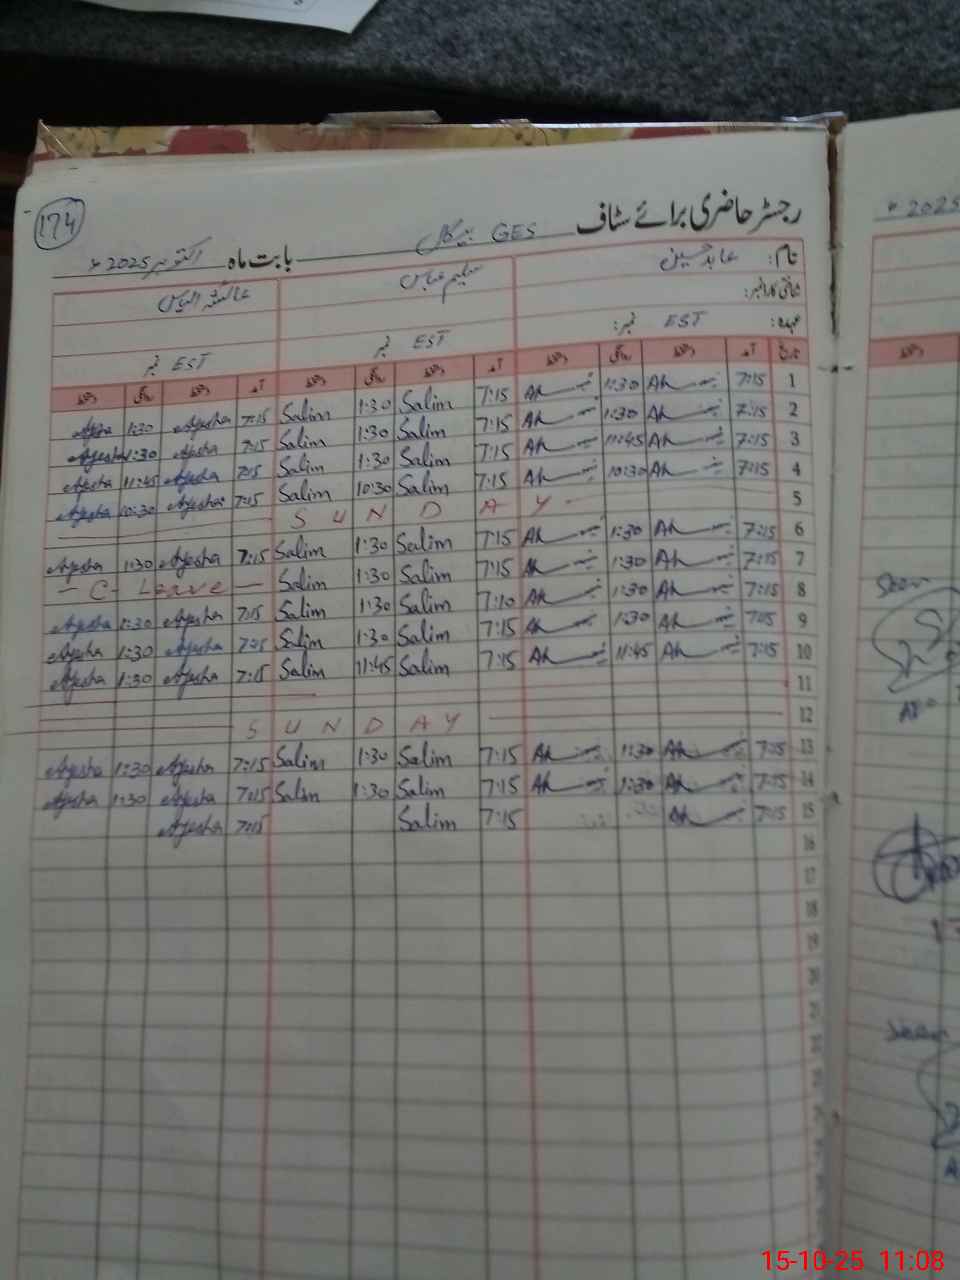 174
رجسٹر حاضری برائے سٹاف
GES
بابت ماہ اکتوبر 2025ء
2025ء
نام: عابد حسین سلیم عباس عائشہ الیاس
شناختی کارڈ نمبر:
عہدہ: EST نمبر: EST نمبر EST نمبر
تاریخ آمد دستخط روانگی دستخط آمد دستخط روانگی دستخط آمد دستخط روانگی دستخط
Ayesha 1:30 Ayesha 7:15 Salim 1:30 Salim 7:15 Ah 1:30 Ah 7:15 1
Ayesha 1:30 Ayesha 7:15 Salim 1:30 Salim 7:15 Ah 1:30 Ah 7:15 2
Ayesha 11:45 Ayesha 7:15 Salim 1:30 Salim 7:15 Ah 11:45 Ah 7:15 3
Ayesha 10:30 Ayesha 7:15 Salim 10:30 Salim 7:15 Ah 10:30 Ah 7:15 4
SUNDAY 5
Ayesha 1:30 Ayesha 7:15 Salim 1:30 Salim 7:15 Ah 1:30 Ah 7:15 6
- C- Leave - Salim 1:30 Salim 7:15 Ah 1:30 Ah 7:15 7
Ayesha 1:30 Ayesha 7:15 Salim 1:30 Salim 7:10 Ah 1:30 Ah 7:15 8
Ayesha 1:30 Ayesha 7:15 Salim 1:30 Salim 7:15 Ah 1:30 Ah 7:15 9
Ayesha 1:30 Ayesha 7:15 Salim 11:45 Salim 7:15 Ah 11:45 Ah 7:15 10
11
SUNDAY 12
Ayesha 1:30 Ayesha 7:15 Salim 1:30 Salim 7:15 Ah 1:30 Ah 7:15 13
Ayesha 1:30 Ayesha 7:15 Salim 1:30 Salim 7:15 Ah 1:30 Ah 7:15 14
Ayesha 7:15 Salim 7:15 Ah 7:15 15
16
17
18
19
20
21
Seen
15-10-25 11:08